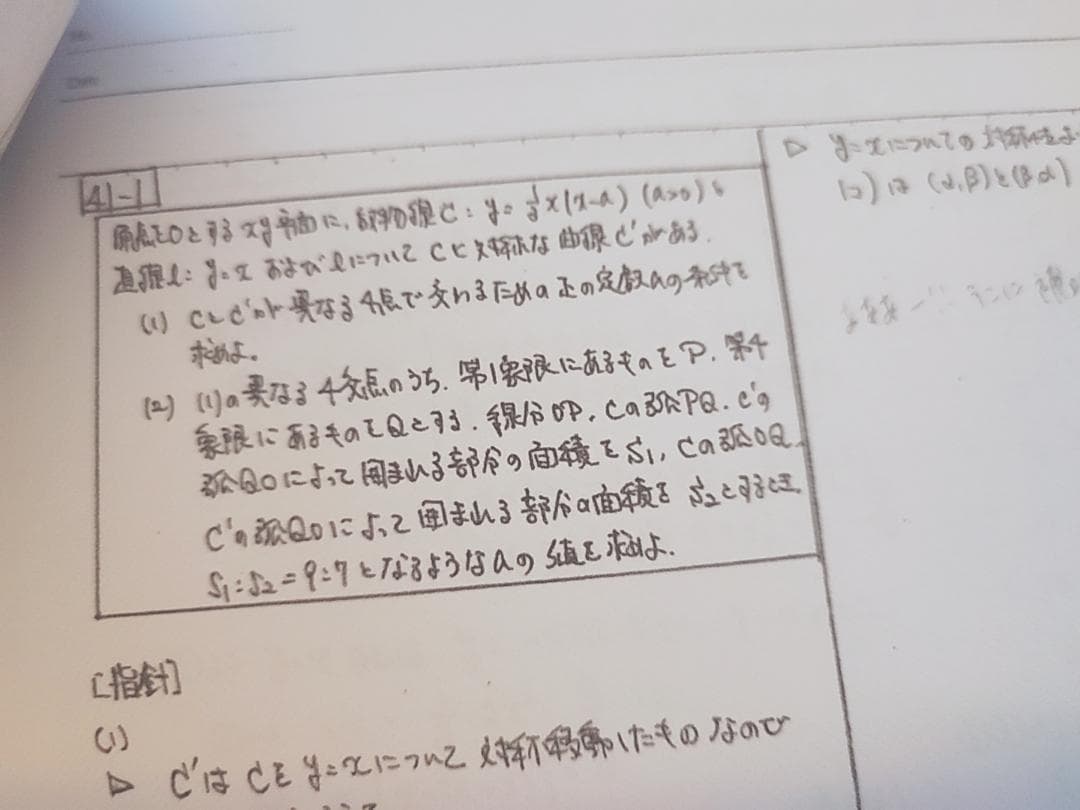 41-1
原点をOとするxy平面に、放物線C: y=½x(x-a) (a>0)と
直線l: y=x およびlについてCと対称な曲線C'がある.
(1) CとC'が異なる4点で交わるための正の定数aの条件を
求めよ。
(2) (1)の異なる4交点のうち、第1象限にあるものをP、第4
象限にあるものをQとする. 線分OP、Cの弧PQ、C'の
弧QOによって囲まれる部分の面積をS₁、Cの弧OQ、
C'の弧QOによって囲まれる部分の面積をS₂とするとき、
S₁:S₂=9:7となるようなaの値を求めよ.
[指針]
(1)
▷ C'はCをy=xについて対称移動したものなので
▷ y=xについての対称性よ
(2)は(α,β)と(β,α)